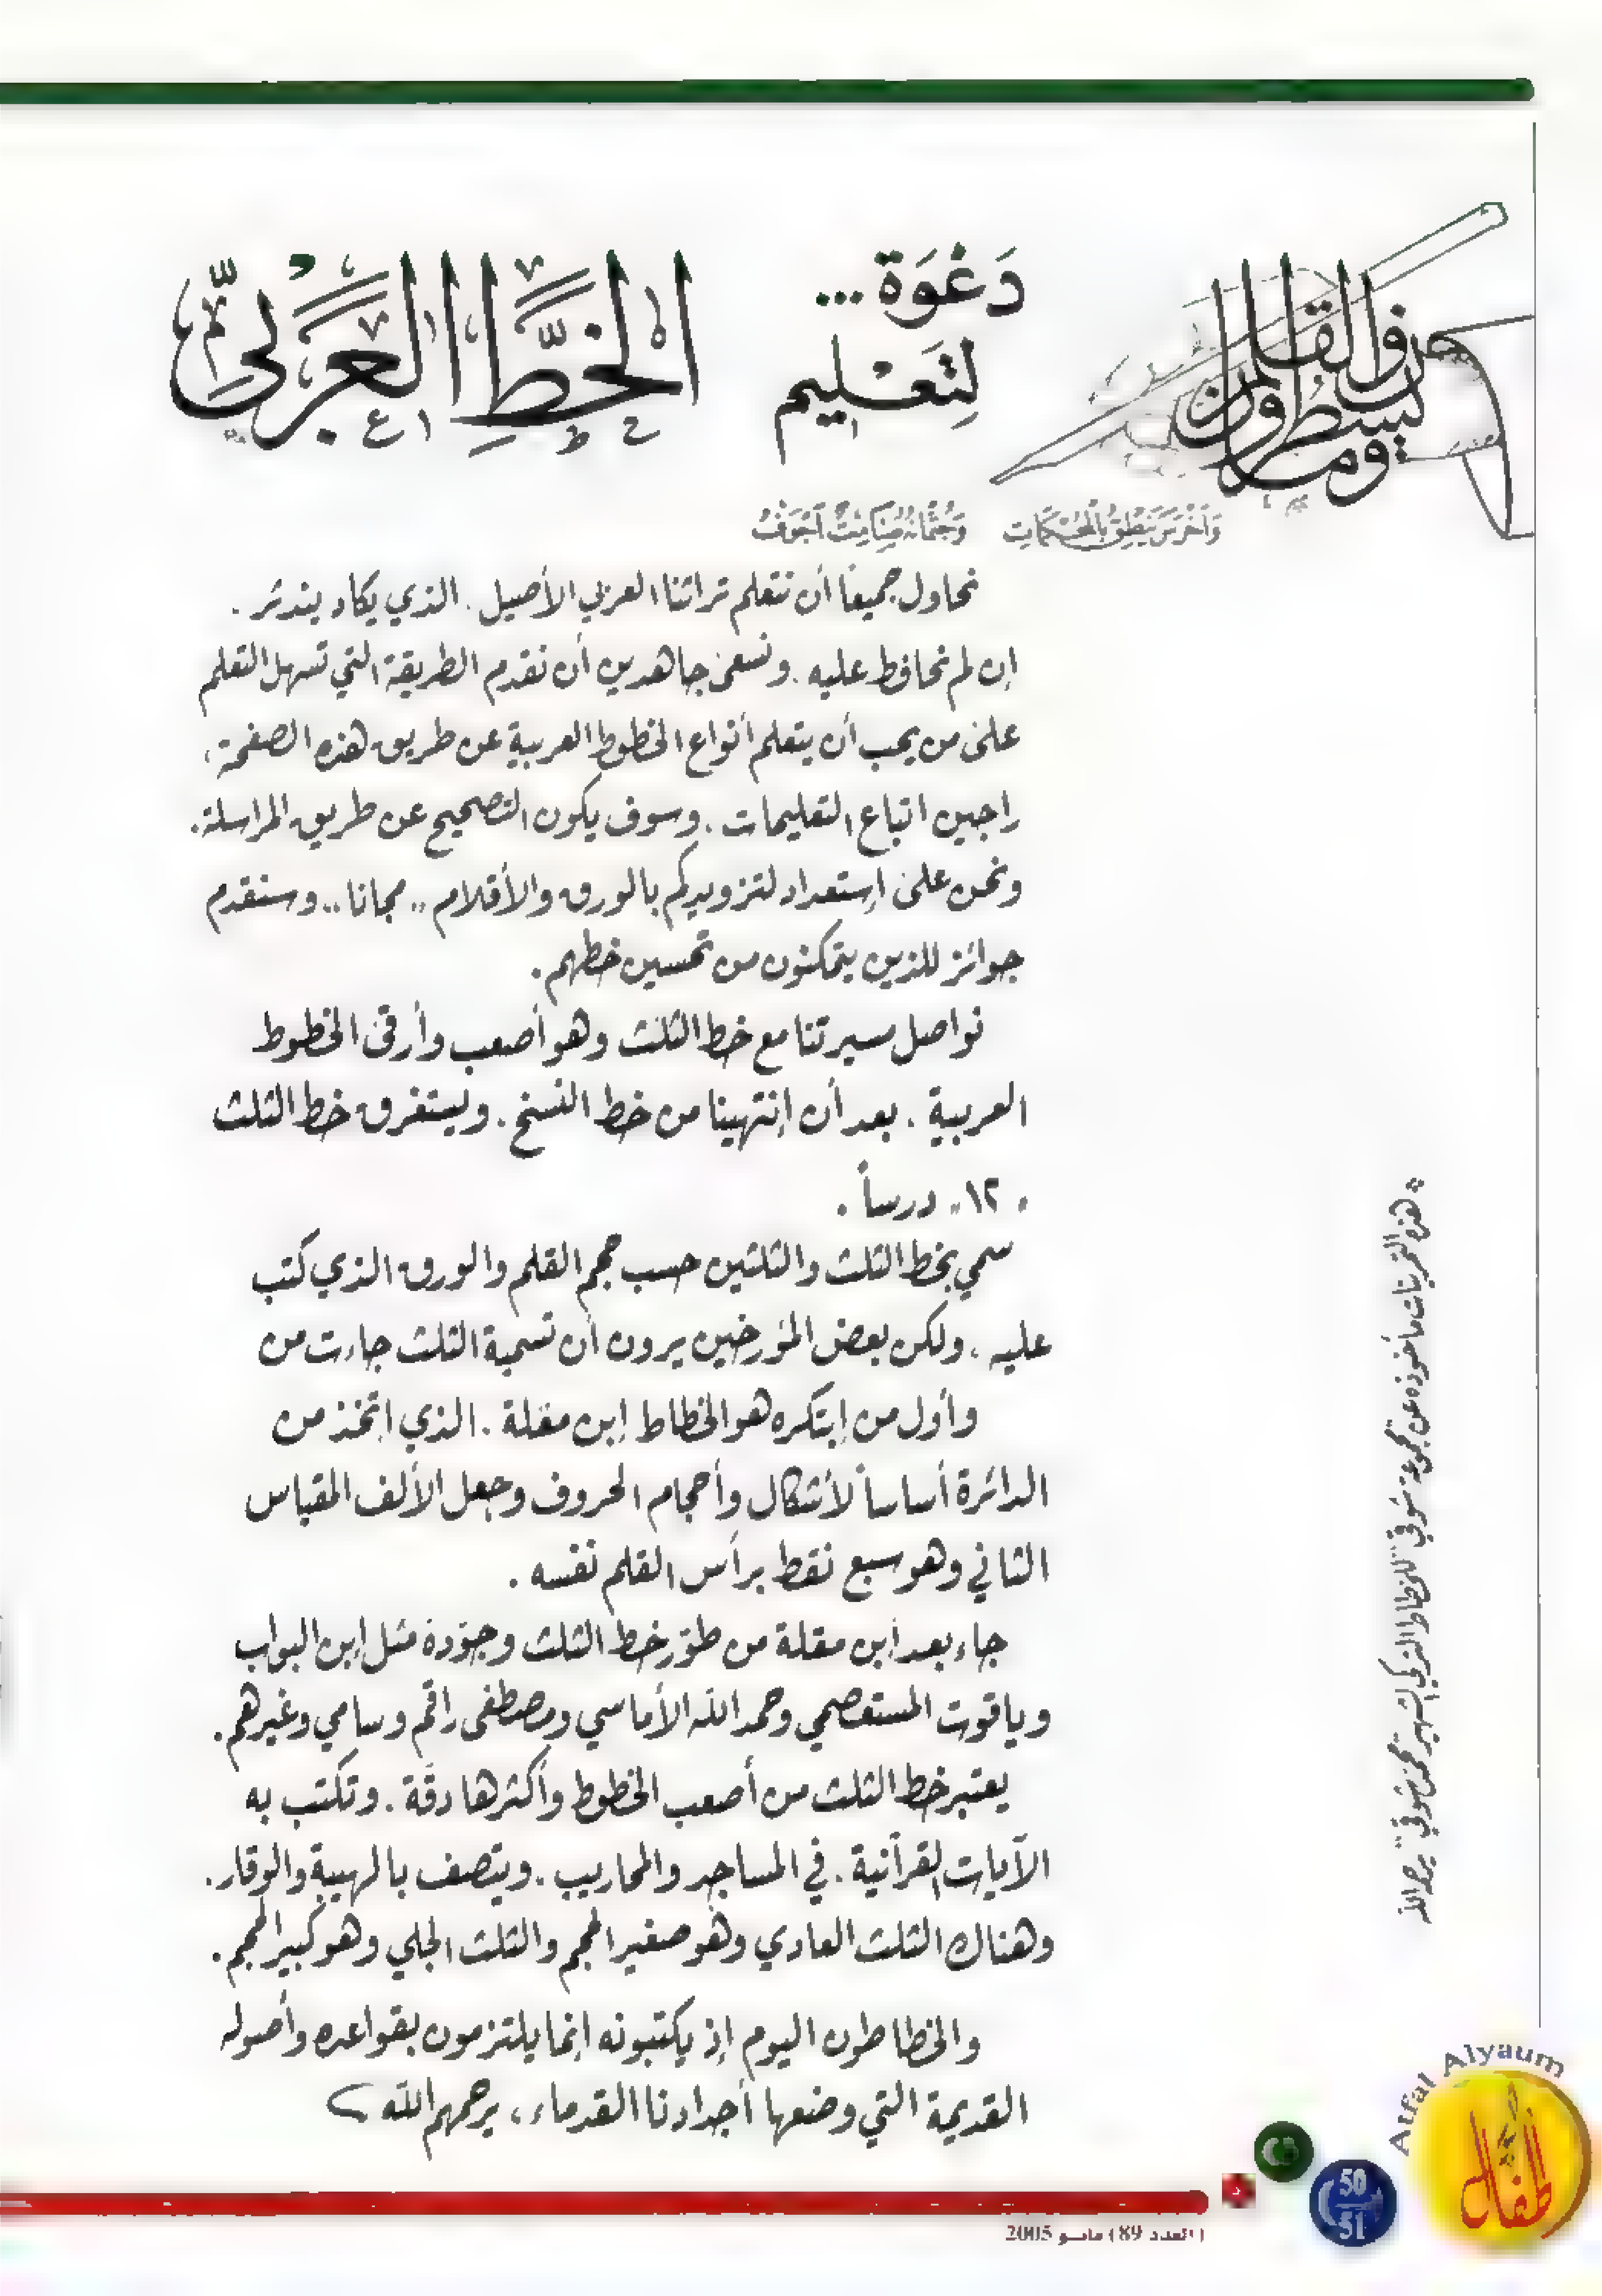 دَعْوَة ...
لِتَعْليم
الخَطِّ العَرَبيّ
ن والقلم
وما يسطرون
وَأَخْرَسَ يَنْطِقُ بِالْمُحْكَمَاتِ وَجُثْمَانُهُ صَامِتٌ أَجْوَفُ
نحاول جميعاً أن نتعلم تراثنا العربي الأصيل . الذي يكاد يندثر .
إن لم نحافظ عليه . ونسعى جاهدين أن نقدم الطريقة التي تسهل التعلم
على من يحب أن يتعلم أنواع الخطوط العربية عن طريق هذه الصفحة ،
راجين اتباع التعليمات . وسوف يكون التصحيح عن طريق المراسلة .
ونحن على إستعداد لتزويدكم بالورق والأقلام ،، مجانا ،، وسنقدم
جوائز للذين يتمكنون من تحسين خطهم .
نواصل مسيرتنا مع خط الثلث وهو أصعب وأرقى الخطوط
العربية . بعد أن إنتهينا من خط النسخ . ويستغرق خط الثلث
" ١٢ " درساً .
سمي بخط الثلث والثلثين حسب حجم القلم والورق الذي كتب
عليه . ولكن بعض المؤرخين يرون أن تسمية الثلث جاءت من
وأول من إبتكره هو الخطاط إبن مقلة . الذي اتخذ من
الدائرة أساساً لأشكال وأحجام الحروف وجعل الألف المقياس
الثاني وهو سبع نقط برأس القلم نفسه .
جاء بعد إبن مقلة من طوّر خط الثلث وجوّده مثل إبن البواب
وياقوت المستعصمي وحمد الله الأماسي ومصطفى راقم وسامي وغيرهم .
يعتبر خط الثلث من أصعب الخطوط وأكثرها دقّة . وتكتب به
الآيات القرآنية . في المساجد والمحاريب . ويتصف بالهيبة والوقار .
وهناك الثلث العادي وهو صغير الحجم والثلث الجلي وهو كبير الحجم .
والخطاطون اليوم إذ يكتبونه إنما يلتزمون بقواعده وأصوله
القديمة التي وضعها أجدادنا القدماء ، يرحمهم الله
* هذه التمرينات مأخوذة عن مجموعة شوقي "للخطاط التركي الشهير محمد شوقي" يرحمه الله
Atfal Alyaum
أطفال
50
51
( العدد 89 ) مايــو 2005